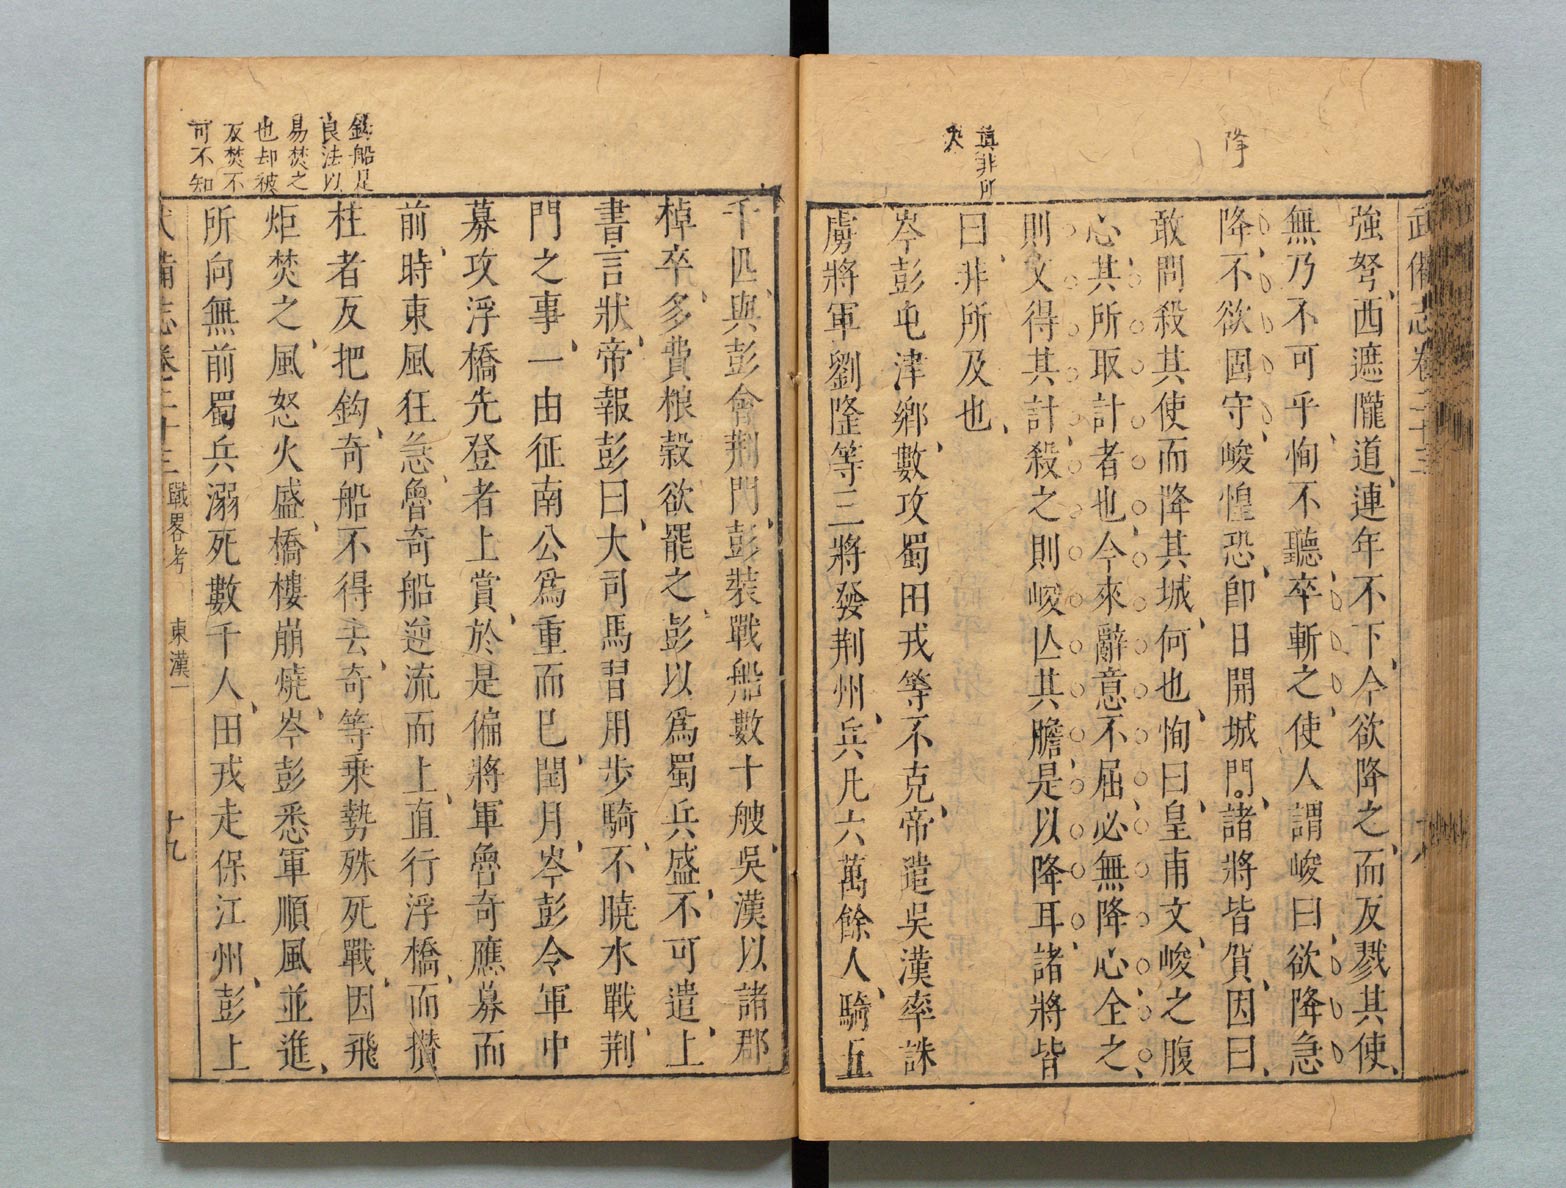 降
真非所
及
武備志卷二十三
強弩西遮隴道連年不下今欲降之而反戮其使
無乃不可乎恂不聽卒斬之使人謂峻曰欲降急
降不欲固守峻惶恐即日開城門諸將皆賀因曰
敢問殺其使而降其城何也恂曰皇甫文峻之腹
心其所取計者也今來辭意不屈必無降心全之
則文得其計殺之則峻亾其膽是以降耳諸將皆
曰非所及也
岑彭屯津鄉數攻蜀田戎等不克帝遣吳漢率誅
虜將軍劉隆等三將發荆州兵凡六萬餘人騎五
千匹與彭會荆門彭裝戰船數十艘吳漢以諸郡
棹卒多費粮穀欲罷之彭以爲蜀兵盛不可遣上
書言狀帝報彭曰大司馬習用步騎不曉水戰荆
門之事一由征南公爲重而巳閏月岑彭令軍中
募攻浮橋先登者上賞於是偏將軍魯奇應募而
前時東風狂急魯奇船逆流而上直行浮橋而攅
柱者反把鈎奇船不得去奇等乗勢殊死戰因飛
炬焚之風怒火盛橋樓崩燒岑彭悉軍順風並進
所向無前蜀兵溺死數千人田戎走保江州彭上
鈎船是
良法以
易焚之
也却被
反焚不
可不知
武備志卷二十三 戰畧考 東漢一 十九